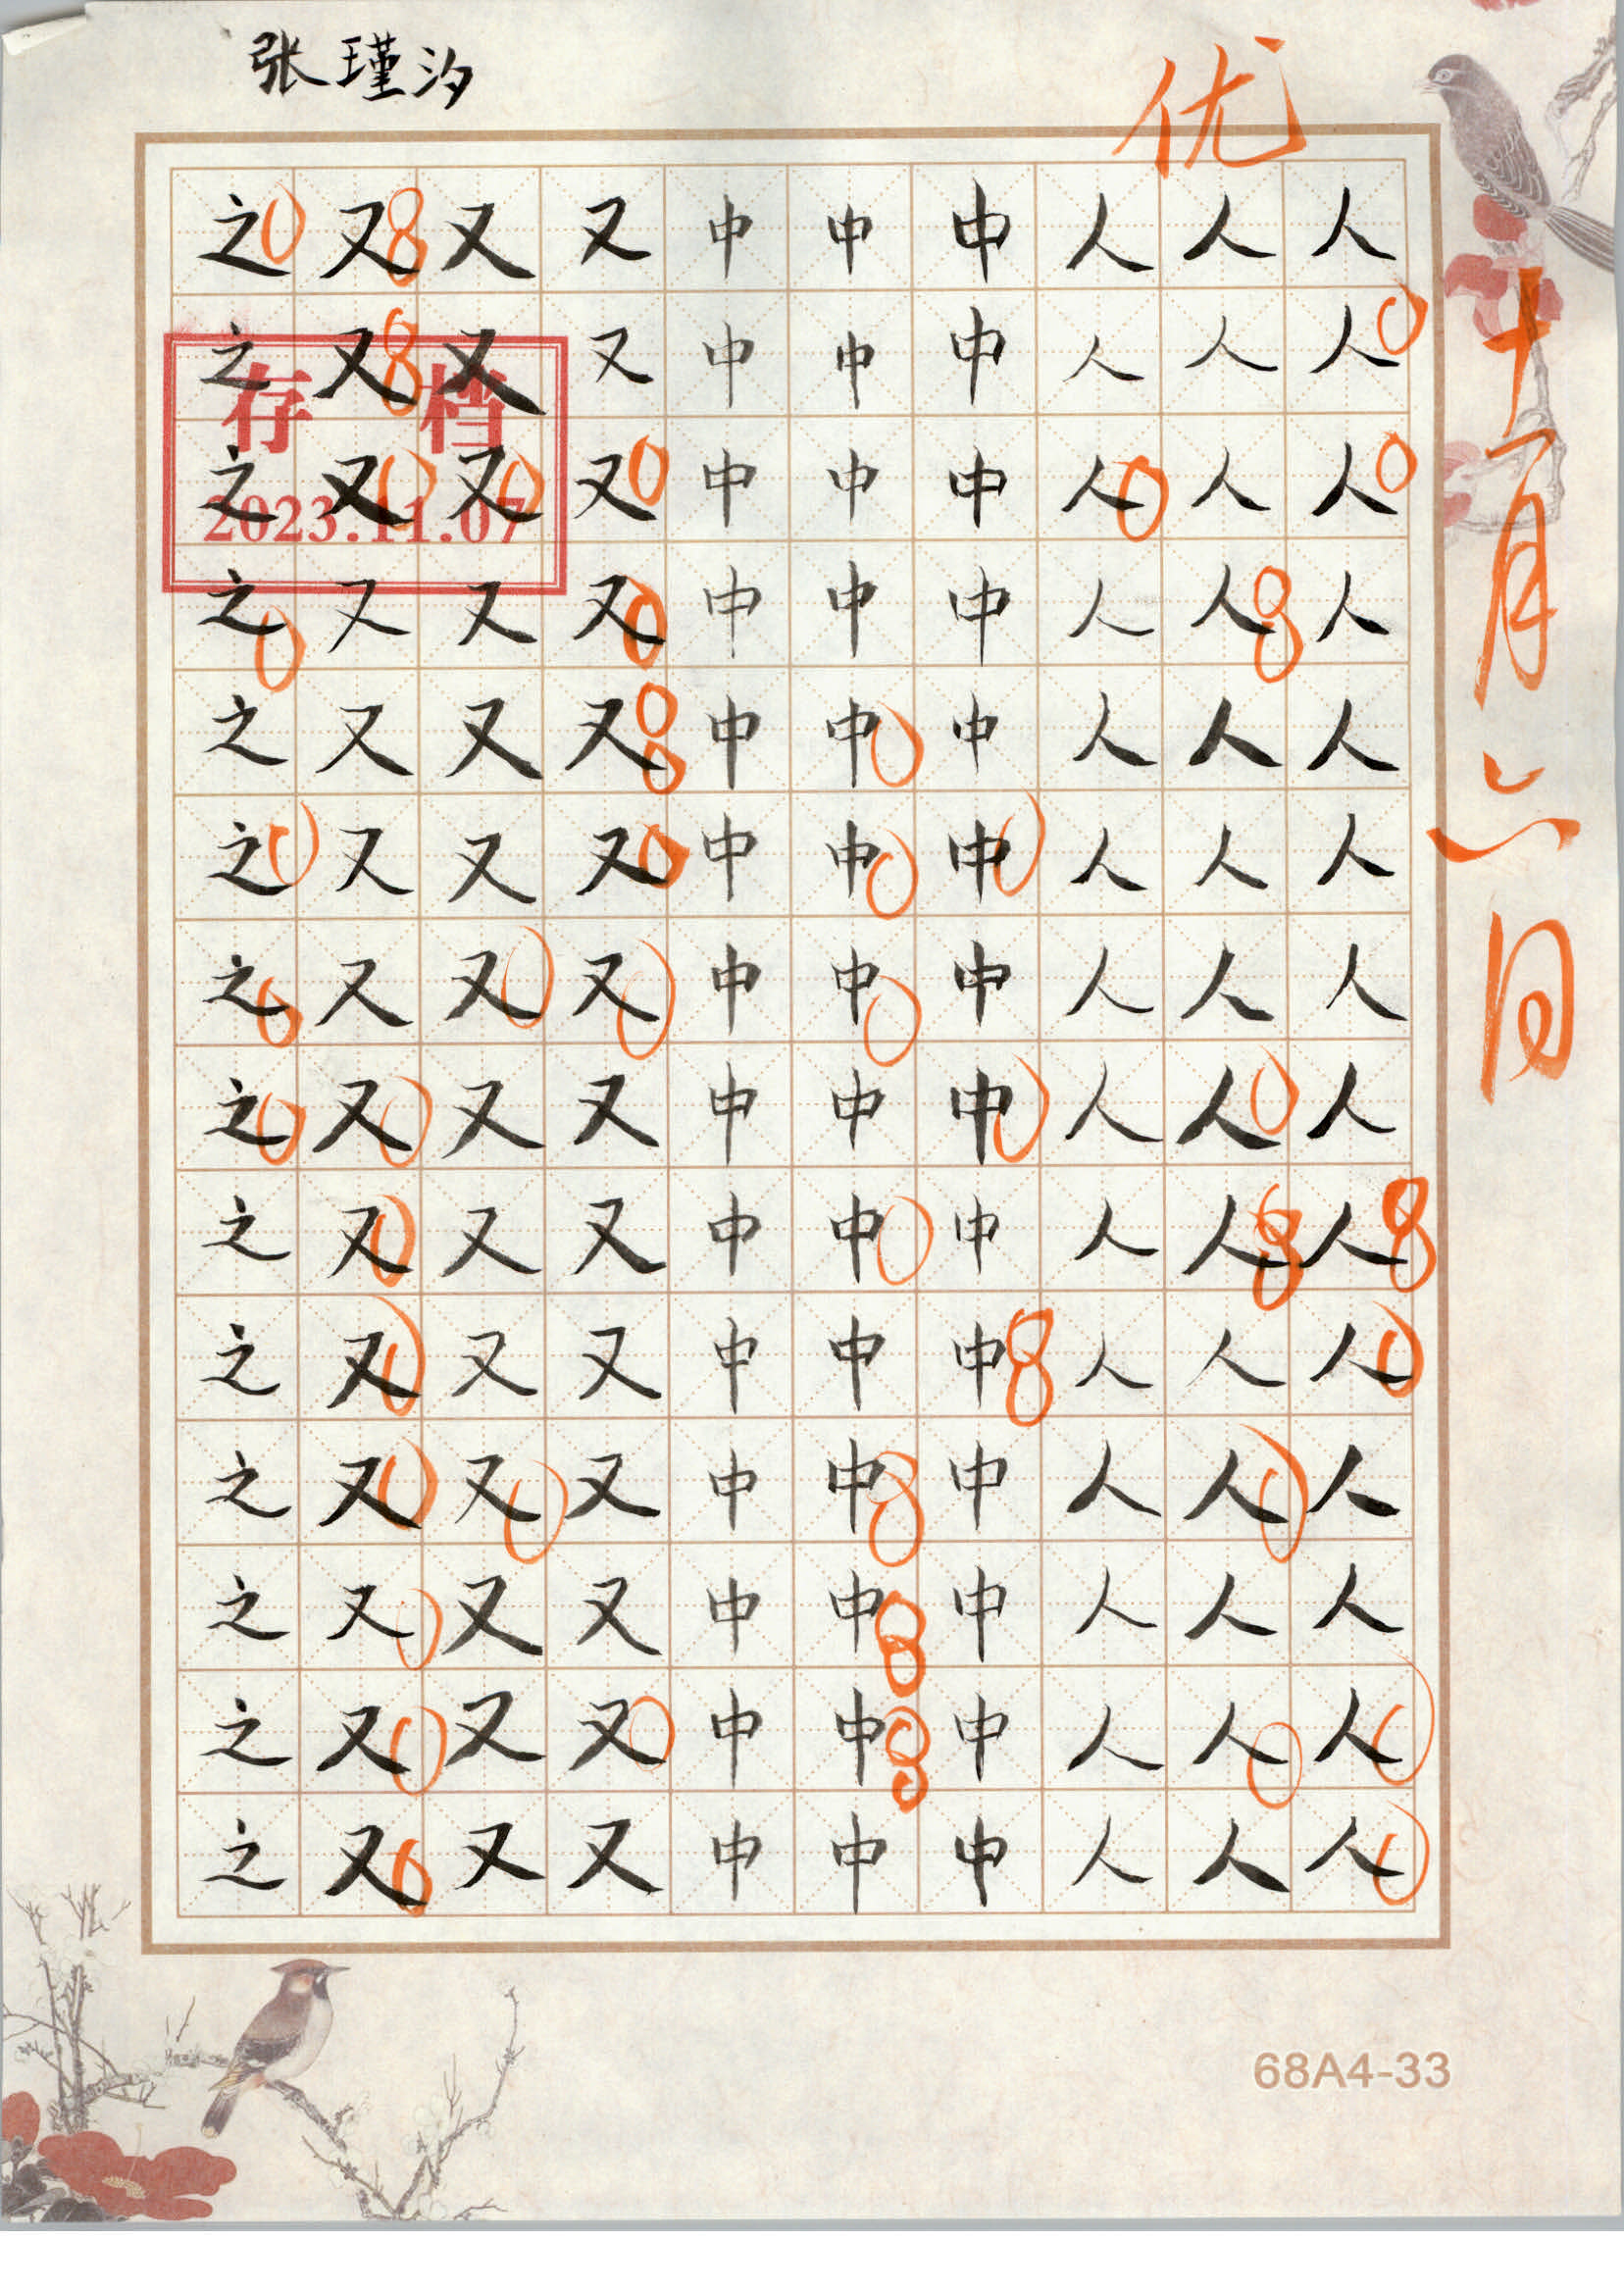 张瑾汐
优
十一月六日
人人人人人人人人人人人人人人
人人人人人人人人人人人人人人
人人人人人人人人人人人人人人
中中中中中中中中中中中中中中
中中中中中中中中中中中中中中
中中中中中中中中中中中中中中
又又又又又又又又又又又又又又
又又又又又又又又又又又又又又
又又又又又又又又又又又又又又
之之之之之之之之之之之之之之
存档
2023.11.07
68A4-33